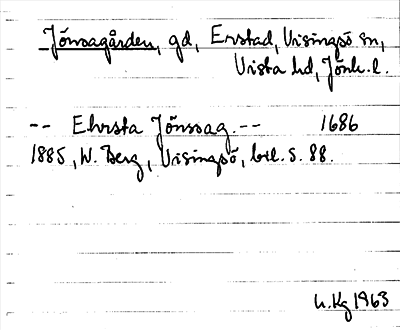 Jönsagården, gd, Erstad, Visingsö sn,
Vista hd, Jönk. l.
-- Ehrsta Jönssag. -- 1686
1885, W. Berg, Visingsö, bil. s. 88.
u. Kg 1963